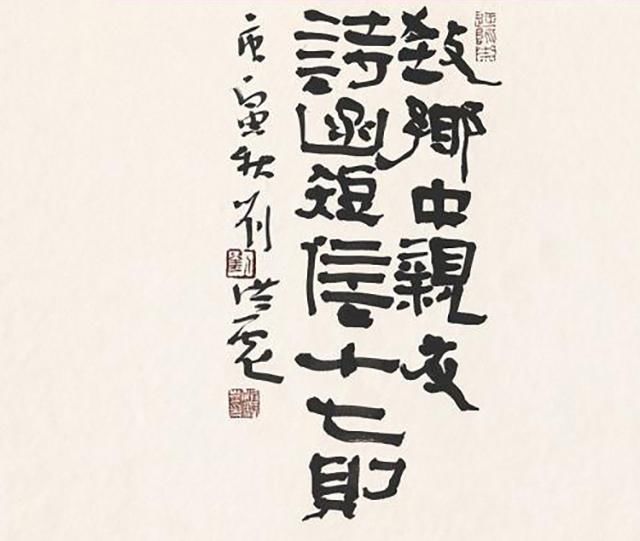 致鄉中親友
詩函短信十七則
庚寅秋劉洪
劉